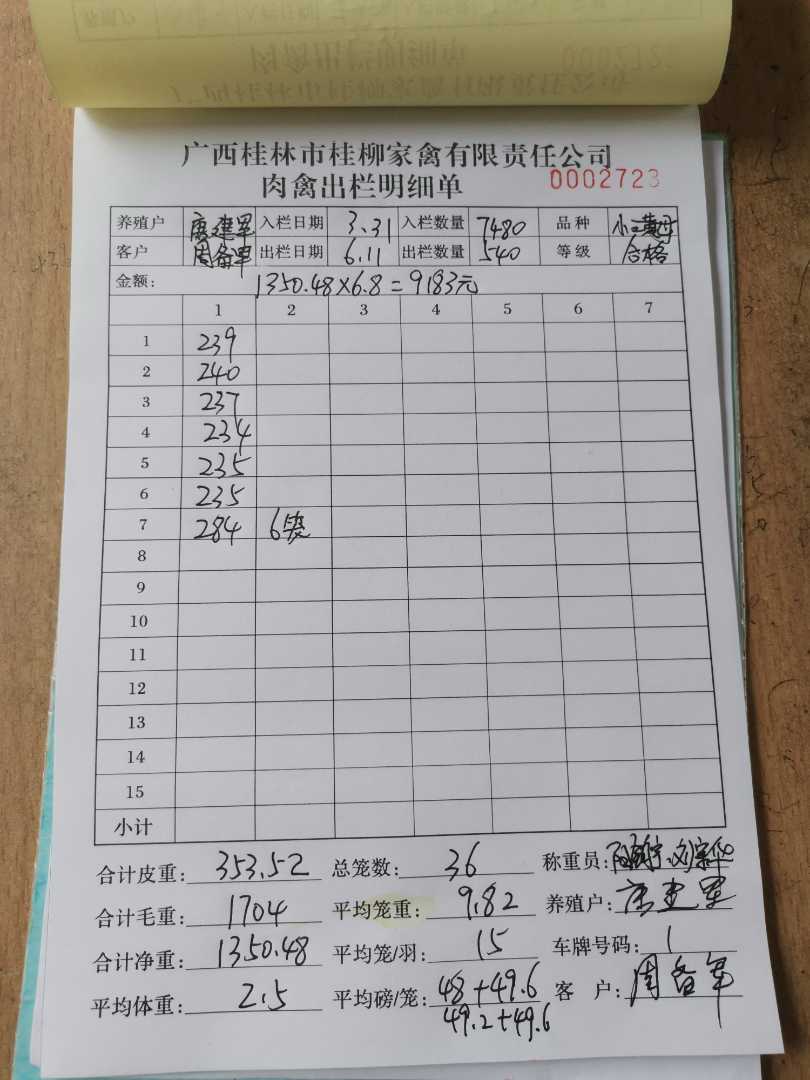 广西桂林市桂柳家禽有限责任公司
肉禽出栏明细单 0002723
养殖户 唐建军 入栏日期 3.31 入栏数量 7480 品种
客户 周备军 出栏日期 6.11 出栏数量 540 等级 合格
金额: 1350.48×6.8=9183元
1 2 3 4 5 6 7
1 239
2 240
3 237
4 234
5 235
6 235
7 284 6
8
9
10
11
12
13
14
15
小计
合计皮重: 353.52 总笼数: 36 称重员:
合计毛重: 1704 平均笼重: 9.82 养殖户: 唐建军
合计净重: 1350.48 平均笼/羽: 15 车牌号码: 1
平均体重: 2.5 平均磅/笼: 48+49.6 客 户: 周备军
49.2+49.6